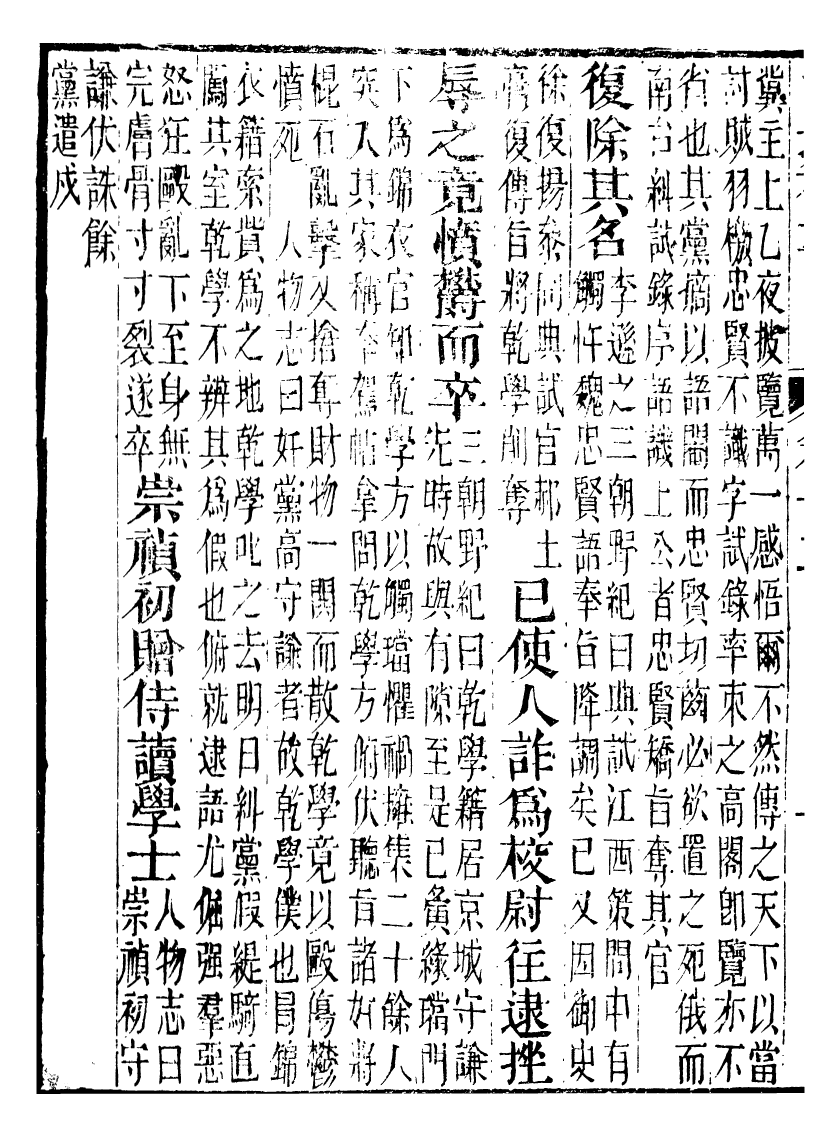 冀主上乙夜披覽萬一感悟爾不然傳之天下以當
討賊羽檄忠賢不識字試錄率束之高閣卽覽亦不
省也其黨摘以語閹而忠賢切齒必欲置之死俄而
南台糾試錄序語譏上公者忠賢矯旨奪其官
復除其名
李遜之三朝野紀曰典試江西策問中有
觸忤魏忠賢語奉旨降調矣已又因御史
徐復揚叅同典試官郝土
膏復傳旨將乾學削奪
已使人詐爲校尉往逮挫
辱之竟憤鬱而卒
三朝野紀曰乾學籍居京城守謙
先時故與有隙至是已夤緣璫門
下爲錦衣官卽乾學方以觸璫懼禍擁集二十餘人
突入其家稱奉駕帖拿問乾學方俯伏聽旨諸奸將
棍石亂擊又搶奪財物一鬨而散乾學竟以毆傷鬱
憤死 人物志曰奸黨高守謙者故乾學僕也冒錦
衣籍索貲爲之地乾學叱之去明日糾黨假緹騎直
闖其室乾學不辨其爲假也俯就逮語尤倔强羣惡
怒狂毆亂下至身無
完膚骨寸寸裂遂卒
崇禎初贈侍讀學士
人物志曰
崇禎初守
謙伏誅餘
黨遣戍